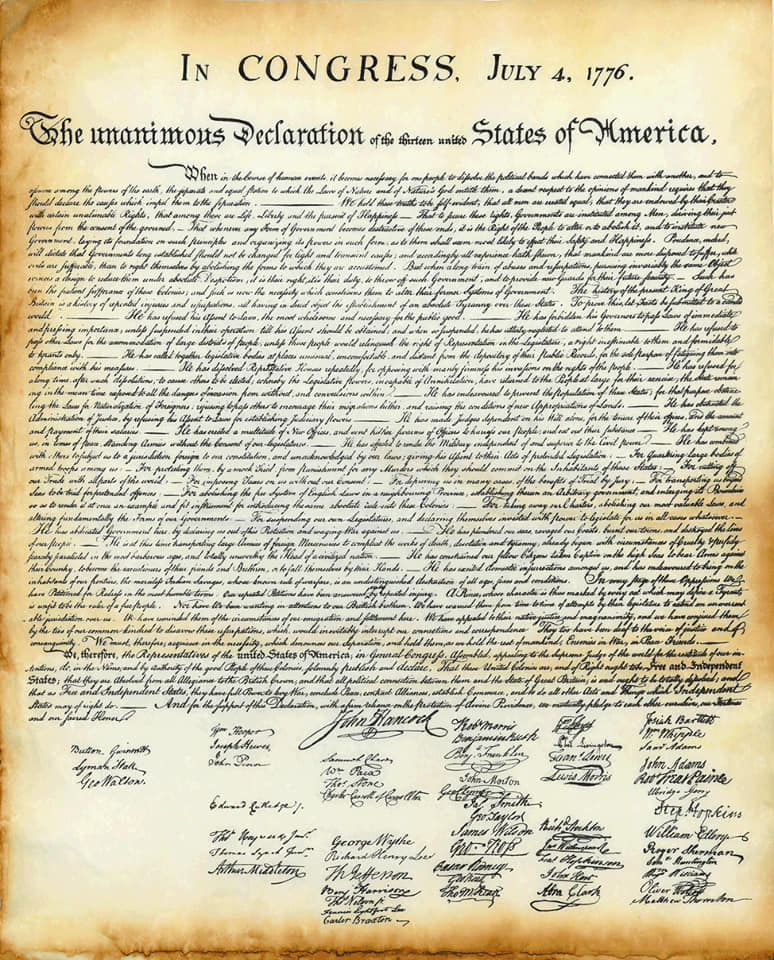 IN CONGRESS, JULY 4, 1776.
The unanimous Declaration of the thirteen united States of America,
When in the Course of human events, it becomes necessary for one people to dissolve the political bands which have connected them with another, and to
assume among the powers of the earth, the separate and equal station to which the Laws of Nature and of Nature's God entitle them, a decent respect to the opinions of mankind requires that they
should declare the causes which impel them to the separation. We hold these truths to be self-evident, that all men are created equal, that they are endowed by their Creator
with certain unalienable Rights, that among these are Life, Liberty and the pursuit of Happiness. — That to secure these rights, Governments are instituted among Men, deriving their just
powers from the consent of the governed, — That whenever any Form of Government becomes destructive of these ends, it is the Right of the People to alter or to abolish it, and to institute new
Government, laying its foundation on such principles and organizing its powers in such form, as to them shall seem most likely to effect their Safety and Happiness. Prudence, indeed,
will dictate that Governments long established should not be changed for light and transient causes; and accordingly all experience hath shewn, that mankind are more disposed to suffer, while
evils are sufferable, than to right themselves by abolishing the forms to which they are accustomed. But when a long train of abuses and usurpations, pursuing invariably the same Object
evinces a design to reduce them under absolute Despotism, it is their right, it is their duty, to throw off such Government, and to provide new Guards for their future security. — Such has
been the patient sufferance of these Colonies; and such is now the necessity which constrains them to alter their former Systems of Government. The history of the present King of Great
Britain is a history of repeated injuries and usurpations, all having in direct object the establishment of an absolute Tyranny over these States. To prove this, let Facts be submitted to a candid
world. He has refused his Assent to Laws, the most wholesome and necessary for the public good. He has forbidden his Governors to pass Laws of immediate
and pressing importance, unless suspended in their operation till his Assent should be obtained; and when so suspended, he has utterly neglected to attend to them. He has refused to
pass other Laws for the accommodation of large districts of people, unless those people would relinquish the right of Representation in the Legislature, a right inestimable to them and formidable
to tyrants only. He has called together legislative bodies at places unusual, uncomfortable, and distant from the depository of their Public Records, for the sole purpose of fatiguing them into
compliance with his measures. He has dissolved Representative Houses repeatedly, for opposing with manly firmness his invasions on the rights of the people. He has refused for
a long time, after such dissolutions, to cause others to be elected; whereby the Legislative powers, incapable of Annihilation, have returned to the People at large for their exercise; the State remain-
ing in the mean time exposed to all the dangers of invasion from without, and convulsions within. He has endeavoured to prevent the population of these States; for that purpose obstruc-
ting the Laws for Naturalization of Foreigners; refusing to pass others to encourage their migrations hither, and raising the conditions of new Appropriations of Lands. He has obstructed the
Administration of Justice, by refusing his Assent to Laws for establishing Judiciary powers. He has made Judges dependent on his Will alone, for the tenure of their offices, and the amount
and payment of their salaries. He has erected a multitude of New Offices, and sent hither swarms of Officers to harrass our people, and eat out their substance. He has kept among
us, in times of peace, Standing Armies without the Consent of our legislatures. He has affected to render the Military independent of and superior to the Civil power. He has combined
with others to subject us to a jurisdiction foreign to our constitution, and unacknowledged by our laws; giving his Assent to their Acts of pretended Legislation: — For Quartering large bodies of
armed troops among us: — For protecting them, by a mock Trial, from punishment for any Murders which they should commit on the Inhabitants of these States: — For cutting off
our Trade with all parts of the world: — For imposing Taxes on us without our Consent: — For depriving us in many cases, of the benefits of Trial by Jury: — For transporting us beyond
Seas to be tried for pretended offences: — For abolishing the free System of English Laws in a neighbouring Province, establishing therein an Arbitrary government, and enlarging its Boundaries
so as to render it at once an example and fit instrument for introducing the same absolute rule into these Colonies: — For taking away our Charters, abolishing our most valuable Laws, and
altering fundamentally the Forms of our Governments: — For suspending our own Legislatures, and declaring themselves invested with power to legislate for us in all cases whatsoever. —
He has abdicated Government here, by declaring us out of his Protection and waging War against us. — He has plundered our seas, ravaged our Coasts, burnt our towns, and destroyed the lives
of our people. — He is at this time transporting large Armies of foreign Mercenaries to compleat the works of death, desolation and tyranny, already begun with circumstances of Cruelty & perfidy
scarcely paralleled in the most barbarous ages, and totally unworthy the Head of a civilized nation. — He has constrained our fellow Citizens taken Captive on the high Seas to bear Arms against
their Country, to become the executioners of their friends and Brethren, or to fall themselves by their Hands. — He has excited domestic insurrections amongst us, and has endeavoured to bring on the
inhabitants of our frontiers, the merciless Indian Savages, whose known rule of warfare, is an undistinguished destruction of all ages, sexes and conditions. In every stage of these Oppressions We
have Petitioned for Redress in the most humble terms: Our repeated Petitions have been answered only by repeated injury. A Prince, whose character is thus marked by every act which may define a Tyrant,
is unfit to be the ruler of a free people. Nor have We been wanting in attentions to our British brethren. We have warned them from time to time of attempts by their legislature to extend an unwarrant-
able jurisdiction over us. We have reminded them of the circumstances of our emigration and settlement here. We have appealed to their native justice and magnanimity, and we have conjured them
by the ties of our common kindred to disavow these usurpations, which, would inevitably interrupt our connections and correspondence. They too have been deaf to the voice of justice and of
consanguinity. We must, therefore, acquiesce in the necessity, which denounces our Separation, and hold them, as we hold the rest of mankind, Enemies in War, in Peace Friends.
We, therefore, the Representatives of the united States of America, in General Congress, Assembled, appealing to the Supreme Judge of the world for the rectitude of our in-
tentions, do, in the Name, and by Authority of the good People of these Colonies, solemnly publish and declare, That these United Colonies are, and of Right ought to be Free and Independent
States; that they are Absolved from all Allegiance to the British Crown, and that all political connection between them and the State of Great Britain, is and ought to be totally dissolved; and
that as Free and Independent States, they have full Power to levy War, conclude Peace, contract Alliances, establish Commerce, and to do all other Acts and Things which Independent
States may of right do. — And for the support of this Declaration, with a firm reliance on the protection of divine Providence, we mutually pledge to each other our Lives, our Fortunes
and our sacred Honor.
John Hancock
Button Gwinnett
Lyman Hall
Geo Walton.
Wm Hooper
Joseph Hewes,
John Penn
Edward Rutledge /.
Thos Heyward Junr.
Thomas Lynch Junr.
Arthur Middleton
Samuel Chase
Wm Paca
Thos Stone
Charles Carroll of Carrollton
George Wythe
Richard Henry Lee
Th Jefferson
Benj Harrison
Thos Nelson jr.
Francis Lightfoot Lee
Carter Braxton
Robt Morris
Benjamin Rush
Benj Franklin
John Morton
Geo Clymer
Jas Smith
Geo Taylor
James Wilson
Geo Ross
Caesar Rodney
Geo Read
Tho M:Kean
Wm Floyd
Phil Livingston
Frans Lewis
Lewis Morris
Richd Stockton
Jno Witherspoon
Fras Hopkinson
John Hart
Abra Clark
Josiah Bartlett
Wm Whipple
Saml Adams
John Adams
Robt Treat Paine
Elbridge Gerry
Step Hopkins
William Ellery
Roger Sherman
Saml Huntington
Wm Williams
Oliver Wolcott
Matthew Thornton